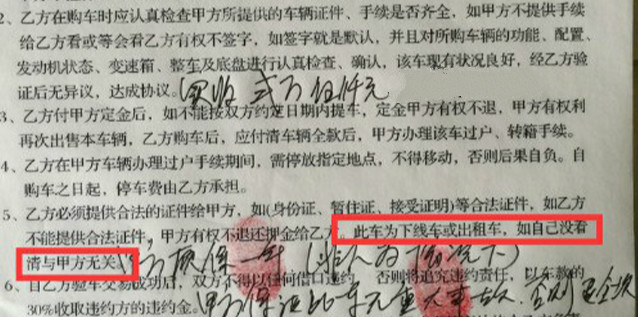 2、乙方在购车时应认真检查甲方所提供的车辆证件、手续是否齐全，如甲方不提供手续
给乙方看或等会看乙方有权不签字，如签字就是默认，并且对所购车辆的功能、配置、
发动机状态、变速箱、整车及底盘进行认真检查、确认，该车现有状况良好，经乙方验
证后无异议，达成协议。实收 贰万伍仟元
3、乙方付甲方定金后，如不能按双方约定日期内提车，定金甲方有权不退，甲方有权利
再次出售本车辆，乙方购车后，应付清车辆全款后，甲方办理该车过户、转籍手续。
4、乙方在甲方车辆办理过户手续期间，需停放指定地点，不得移动，否则后果自负。自
购车之日起，停车费由乙方承担。
5、乙方必须提供合法的证件给甲方，如(身份证、暂住证、接受证明)等合法证件，如乙方
不能提供合法证件，甲方有权不退还押金给乙方。此车为下线车或出租车，如自己没看
清与甲方无关。
6、自乙方验车交易成功后，双方不得以任何借口违约，否则将追究违约责任，以车款的
30%收取违约方的违约金。甲方保证此车无重大事故，否则退全款